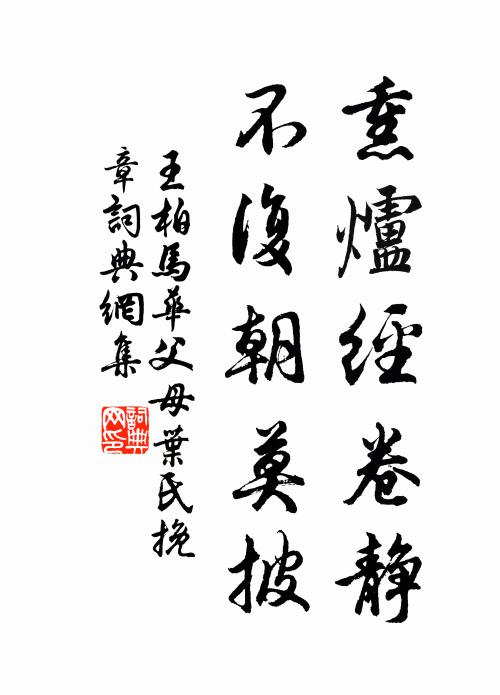 熏爐經卷靜
不復朝莫披
王柏馬華父母葉氏挽
章詞典網集
詞典网印